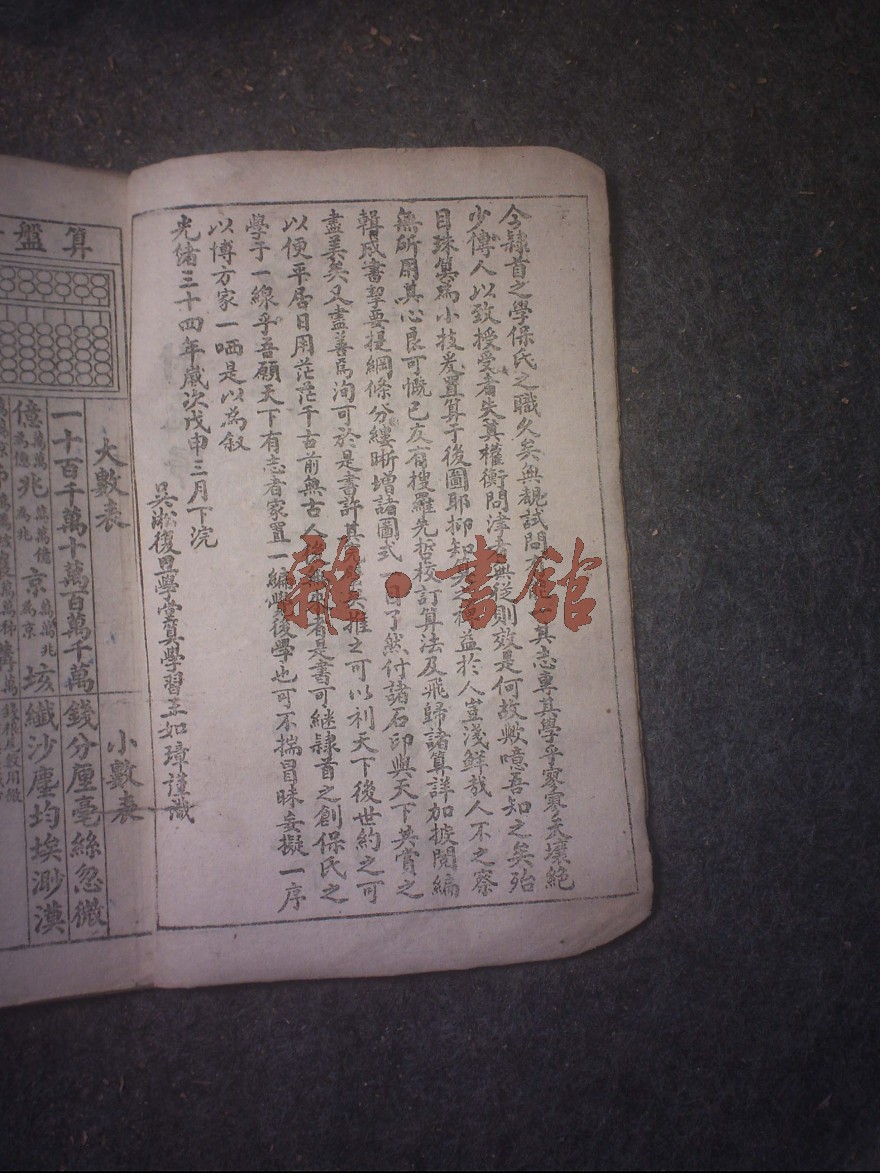 今隸首之學保氏之職久矣無覩試問 其志專其學乎寥寥天壤絶
少傳人以致授受者失其權衡問津者無從則效是何故歟噫吾知之矣殆
目珠算為小技爰置算于後圖耶抑 益於人豈淺鮮哉人不之察
無所用其心良可慨已友 搜羅先哲校訂算法及飛歸諸算詳加披閱編
輯成書挈要提綱條分縷晰增諸圖式一目了然付諸石印與天下共賞之
盡美矣又盡善焉洵可於是書許其 推之可以利天下後世約之可
以便平居日用茫茫千古前無古人 者是書可継隸首之創保氏之
學于一線乎吾願天下有志者家置一編 後學也可不揣冒昧妄擬一序
以博方家一哂是以為叙
光緒三十四年歲次戊申三月下浣
吳淞復旦學堂 學習王如璋謹識
算盤
大數表
一十百千萬十萬百萬千萬
億 萬萬為億 兆 萬萬億為兆 京 萬萬兆為京 垓
小數表
錢分厘毫絲忽微
纖沙塵均埃渺漠
雜·書館